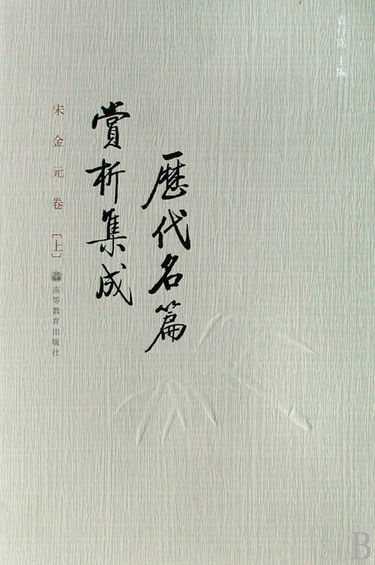 袁行霈 主编
歷代名篇
賞析集成
宋金元卷［上］
高等教育出版社
B